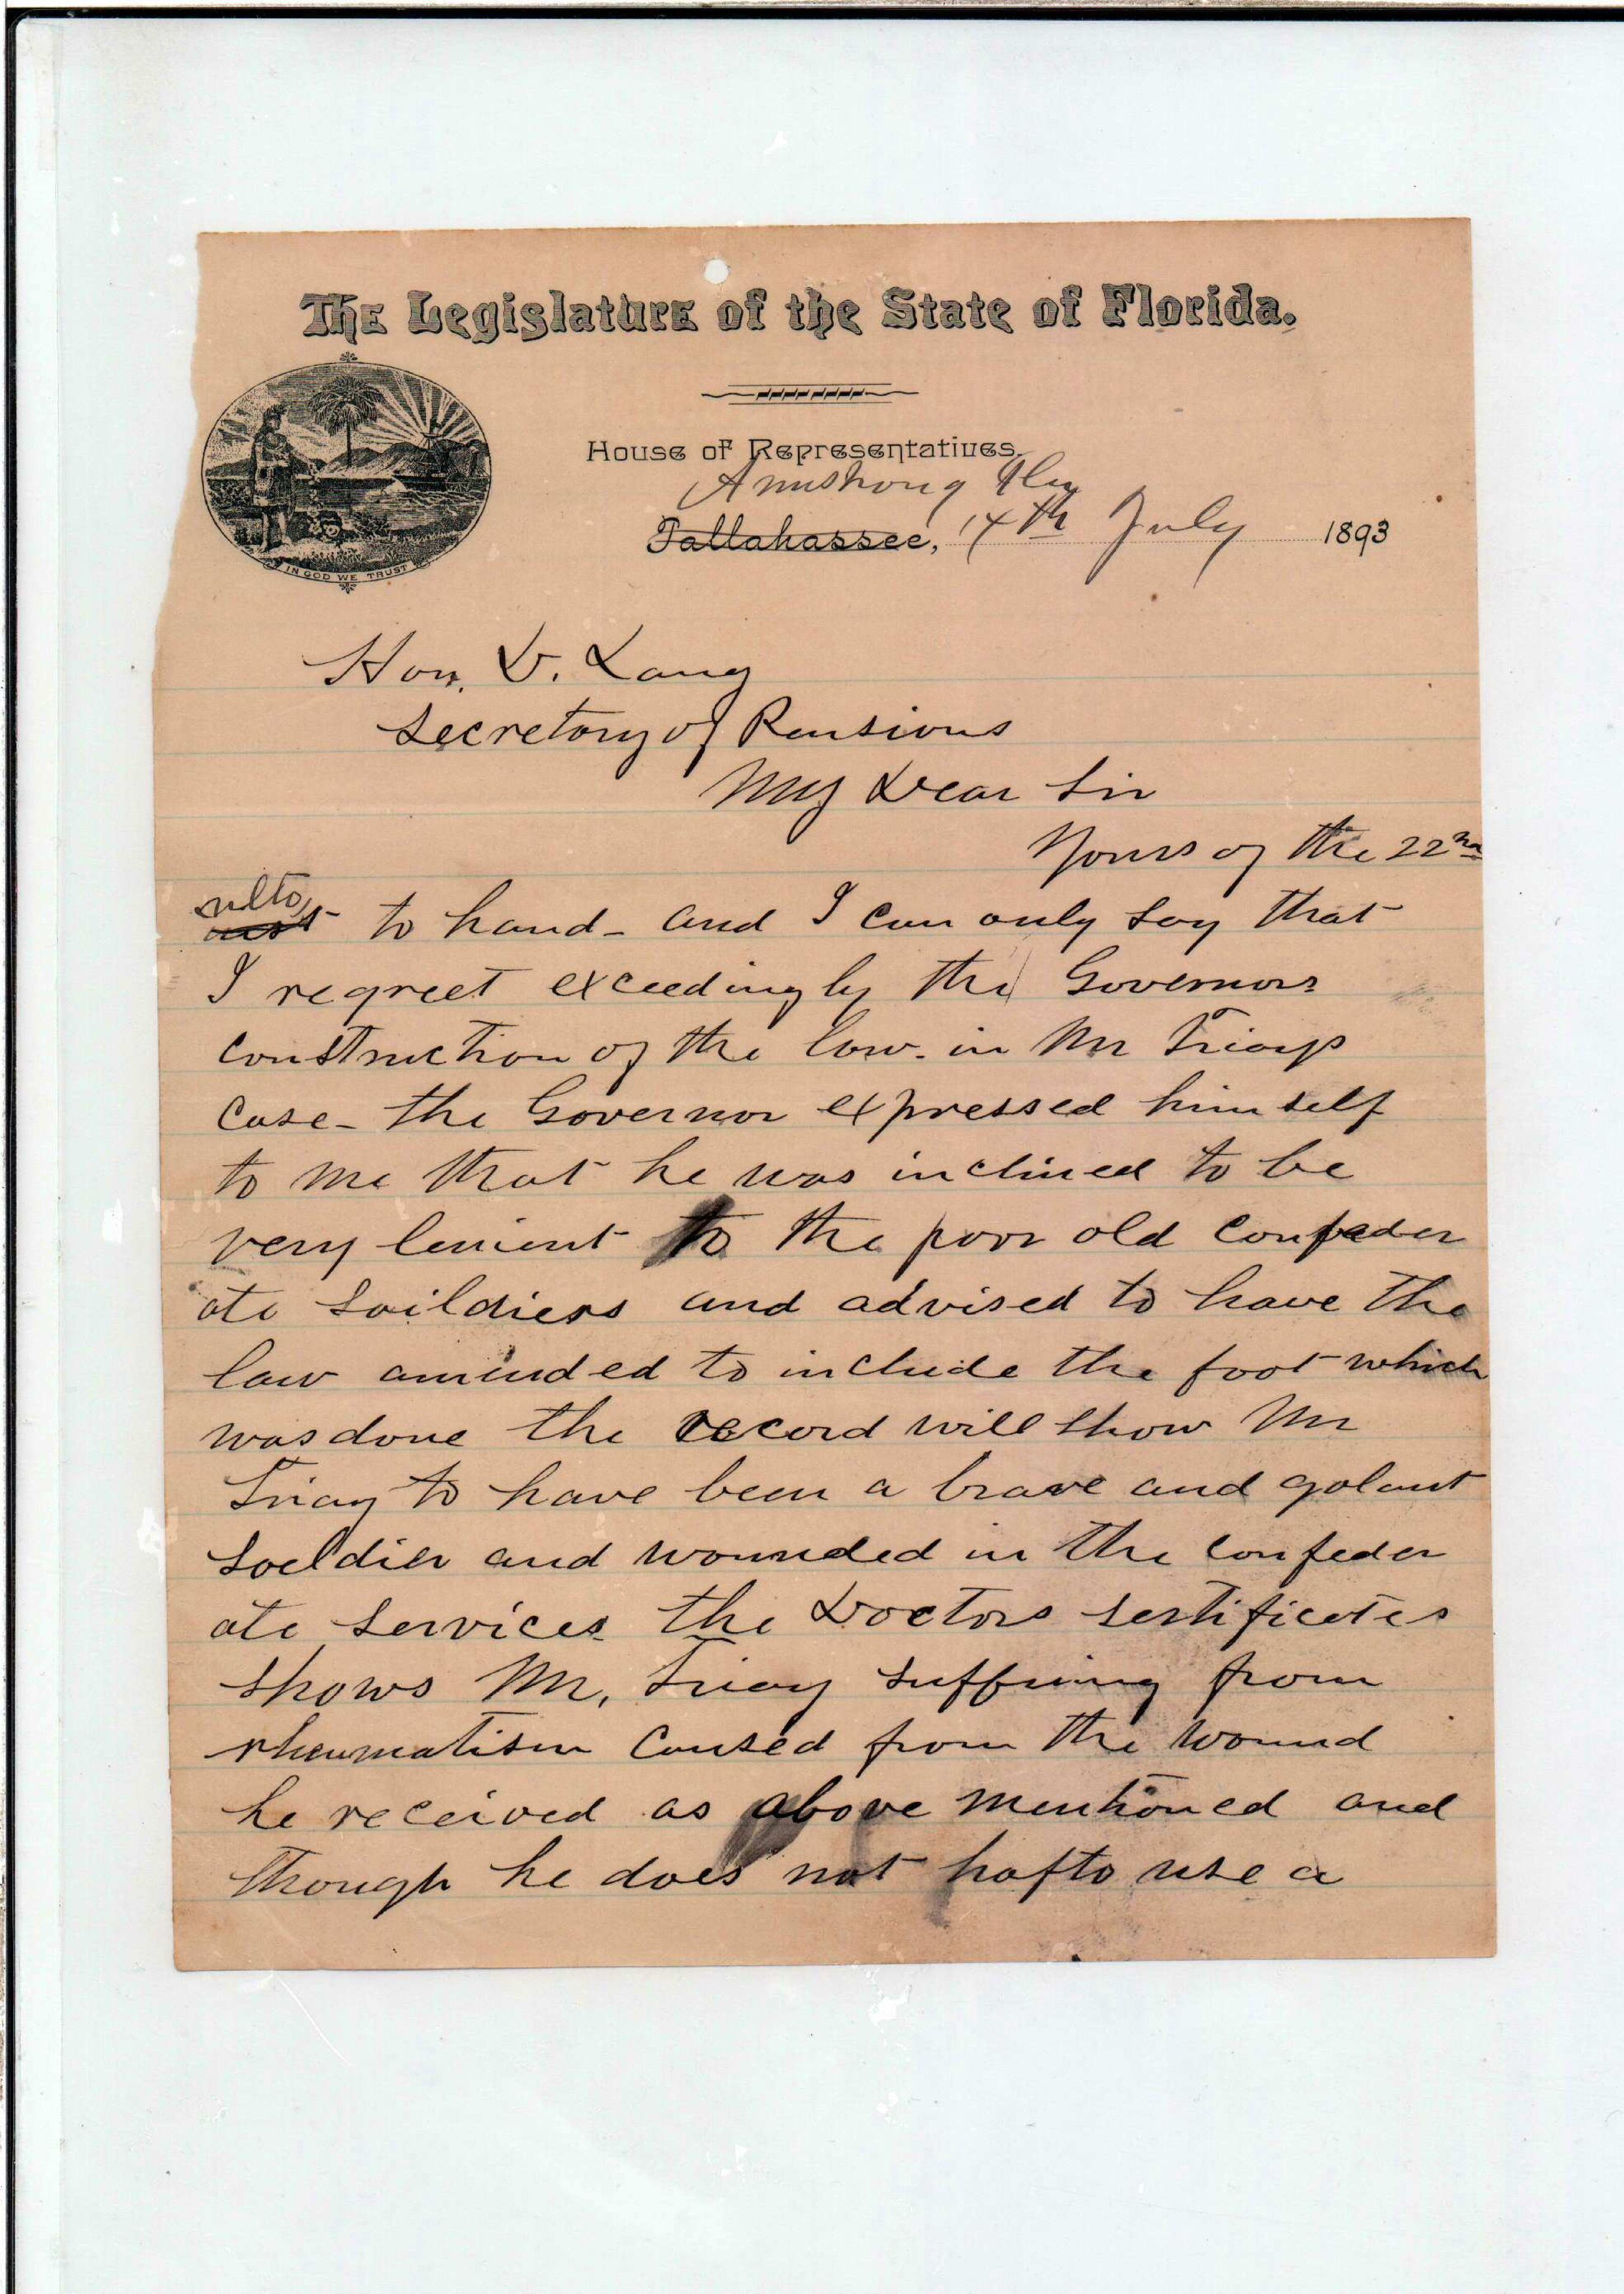 The Legislature of the State of Florida.
House of Representatives.
Armstrong Fla
Tallahassee, 14th July 1893
IN GOD WE TRUST
Hon. D. Lang
Secretary of Pensions
My Dear Sir
Yours of the 22nd
ulto
inst to hand - and I can only say that
I regreet exceedingly the Governors
construction of the law. in Mr Triays
case - the Governor expressed himself
to me that he was inclined to be
very lenient to the poor old confeder
ate soildiers and advised to have the
law amended to include the foot which
was done the record will show Mr
Triay to have been a brave and galant
soeldier and wounded in the confeder
ate services the Doctors sertificates
shows Mr. Triay suffring from
rheumatism caused from the wound
he received as above mentioned and
though he does not hafto use a